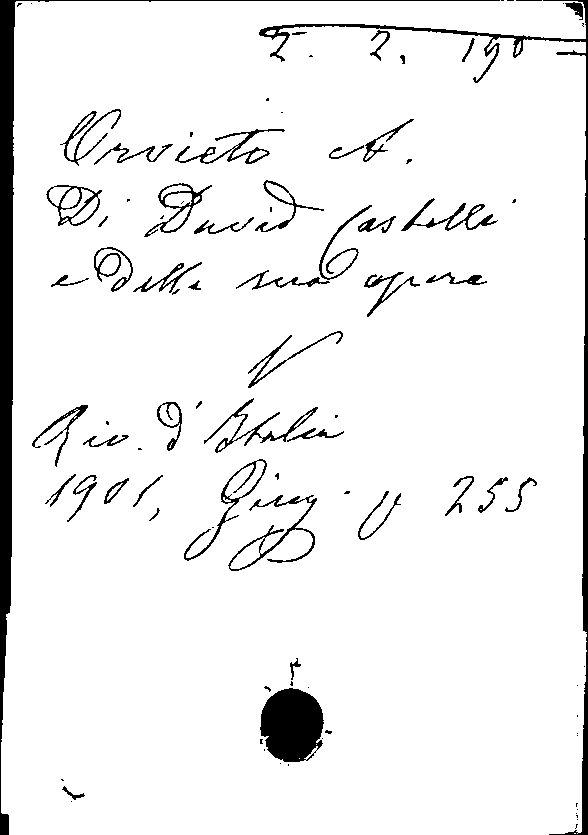 Z. 2. 190
Orvieto A.
Di David Castelli
e della sua opera
V
Riv. d'Italia
1901, Giug. p 255